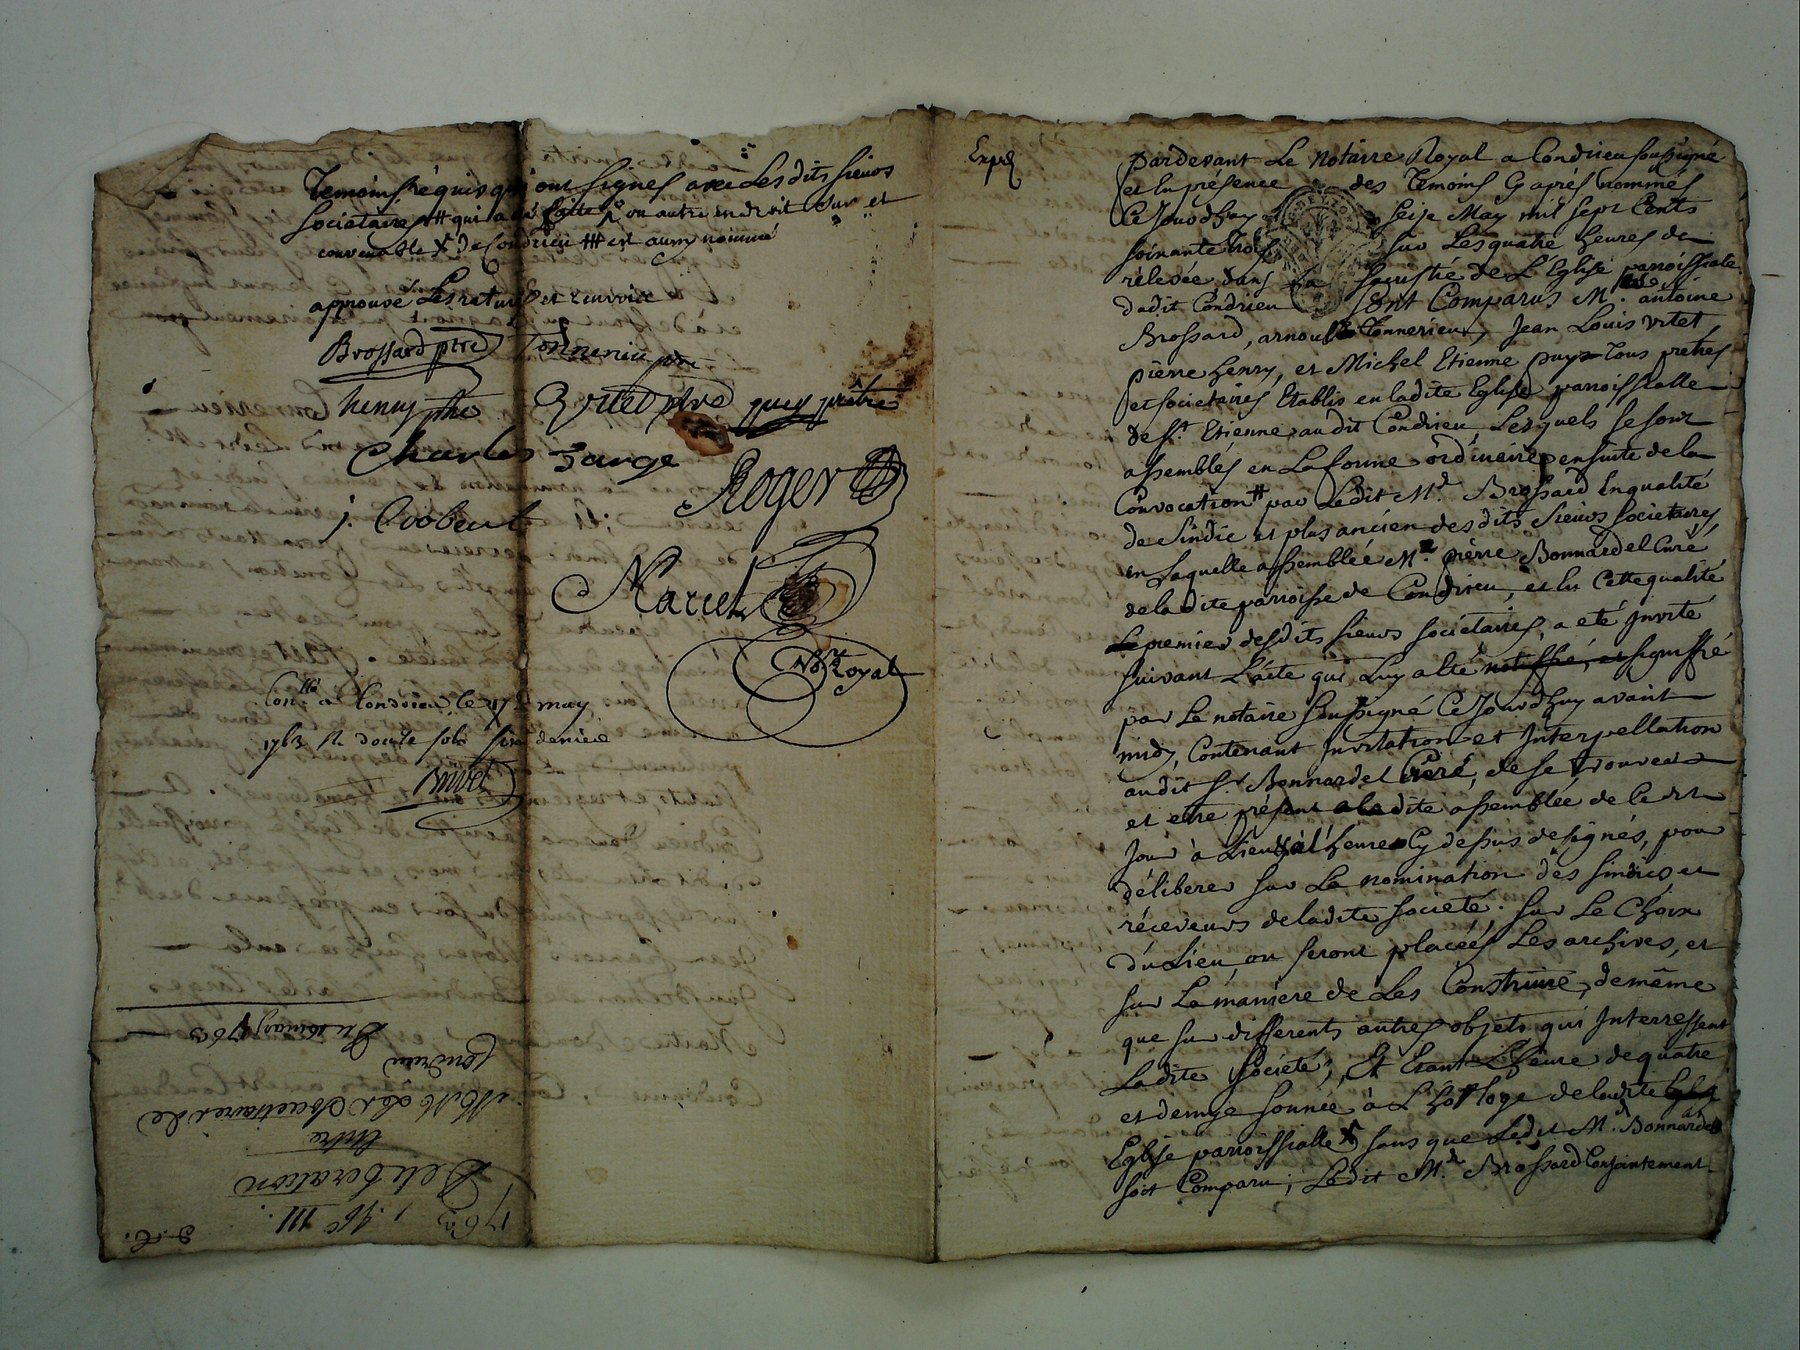 Temoins réquis qui ont signés avec Les dits sieurs
societaires # qui a été faitte ou autre endroit sur et
convenable X de Condrieu ## est aussy nommé
approuvé Les ratures et renvois
Brossard ptre Tonnerieu ptre
henry ptre Vitet ptre puy prêtre
Charles Farge
Roger
j.
Marcel
No.re Royal
Con.lé a Condrieu le 17 may
1763 R. douze sols six deniers
1763
III
Deliberation
Entre
MM Les Societaires de
Condrieu
Du 16 may 1763
Exped
pardevant Le Notaire Royal a Condrieu soussigné
et En présence des Temoins Cy aprés nommés
Ce Jourd'huy seize May mil sept Cents
soixante Trois sur Les quatre heures de
relevée dans La sacristie de L'Eglise parroissiale
dudit Condrieu sont Comparus M.rs antoine
Brossard, arnould Tonnerieux, Jean Louis vitet,
pierre henry, et Michel Etienne puy Tous pretres
et societaires Etablis en ladite Eglise parroissialle
de S.t Etienne audit Condrieu Lesquels se sont
assemblés en La forme ordinaire ensuite de la
Convocation # par Ledit M.r Brossard En qualité
de sindic et plus ancien des dits sieurs societaires,
en Laquelle assemblée M.r pierre Bonnardel Curé
de la dite parroisse de Condrieu, et En Cette qualité
Le premier desdits sieurs societaires, a eté Jnvité
suivant L'acte qui Luy a eté notiffié, et signiffié
par Le notaire soussigné Ce Jourd'huy avant
midy, Contenant Jnvitation et Jnterpellation
audit S.r Bonnardel Curé, de se trouver
et etre présent a ladite assemblée de Ce dit
Jour à Lieu & à l'heure Cy dessus designés, pour
déliberer sur La nomination des sindics et
réceveurs de ladite societé. sur Le Choix
du Lieu, ou seront placées Les archives, et
sur La maniere de Les Construire, de même
que sur differents autres objets qui Jnterressent
Ladite societé; Et Etant L'heure de quatre
et demye sonnée à L'horloge de ladite
Eglise parroissialle X sans que Ledit M.r Bonnardel
soit Comparu; Ledit M.r Brossard Conjointement